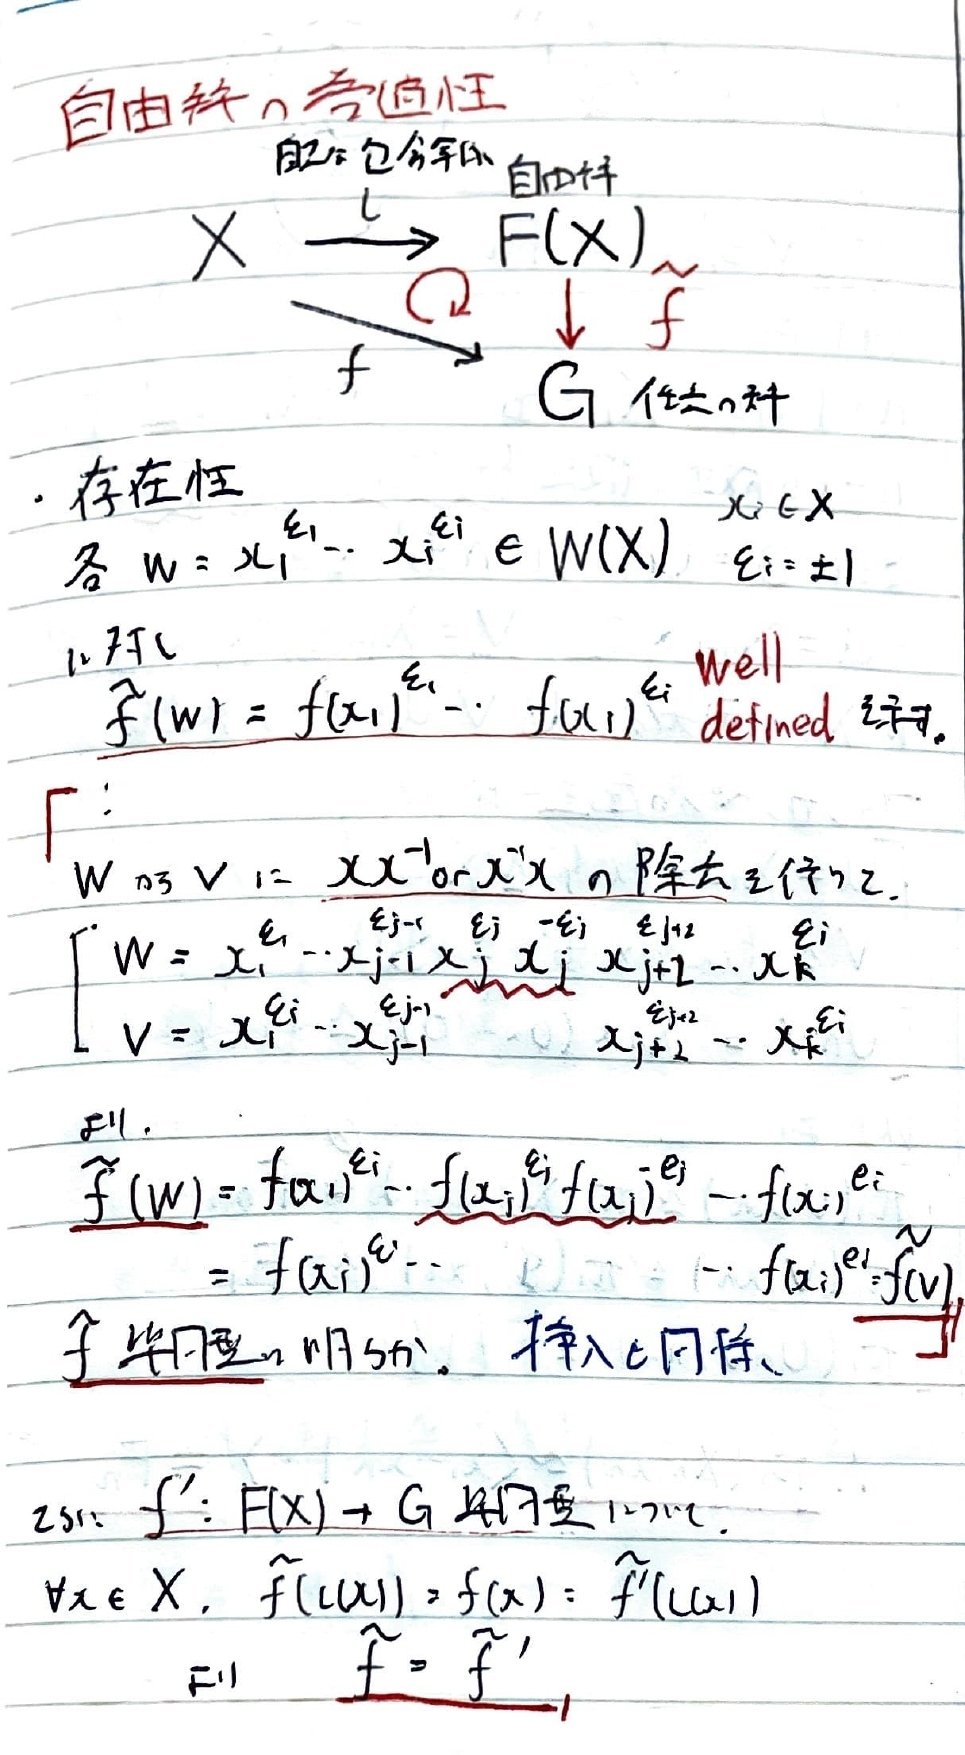 自由群の普遍性
自己な包含写像
X ι→ F(X) 自由群
f f̃
G 任意の群
・存在性
各 w = x₁^ε₁ … xᵢ^εᵢ ∈ W(X) xᵢ ∈ X εᵢ = ±1
に対し
f̃(w) = f(x₁)^ε₁ … f(x₁)^εᵢ well defined を示す。
「∵
W から V に xx⁻¹ or x⁻¹x の 除去を行って、
W = x₁^ε₁ … x_{j-1}^ε_{j-1} x_j^ε_j x_j^-ε_j x_{j+2}^ε_{j+2} … x_k^εᵢ
V = x₁^εᵢ … x_{j-1}^ε_{j-1} x_{j+2}^ε_{j+2} … x_k^εᵢ
より.
f̃(W) = f(x₁)^εᵢ … f(x_j)^ε_j f(x_j)^-e_j … f(xᵢ)^eᵢ
= f(xᵢ)^εⁱ … … f(xᵢ)^eⁱ = f̃(V)」
f̃ 準同型は明らか。 挿入も同様、
さらに f′: F(X) → G 準同型について.
∀x ∈ X, f̃(ι(x)) = f(x) = f̃′(ι(x))
より f̃ = f̃′